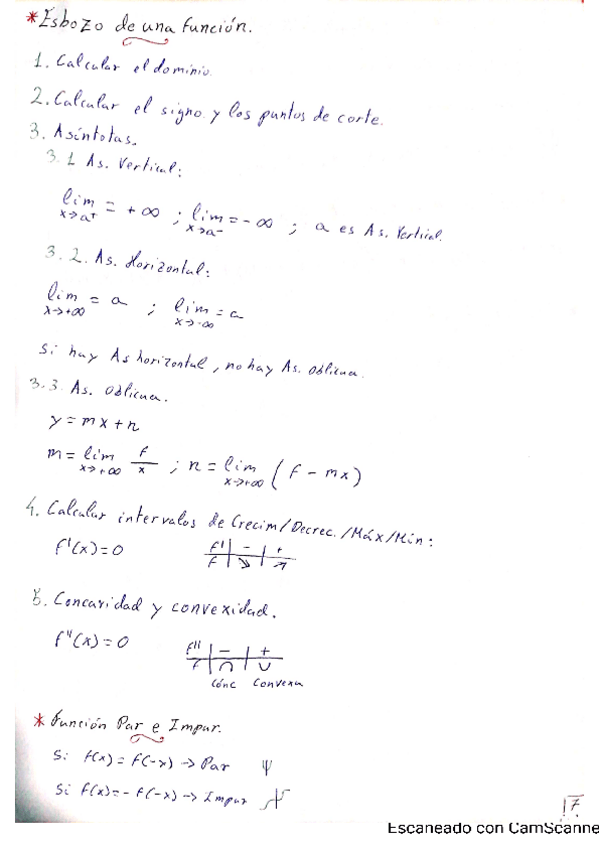 * Esbozo de una función.
1. Calcular el dominio.
2. Calcular el signo y los puntos de corte.
3. Asíntotas.
3.1 As. Vertical:
lim x→a⁺ = +∞ ; lim x→a⁻ = -∞ ; a es As. Vertical.
3.2. As. Horizontal:
lim x→+∞ = a ; lim x→-∞ = a
Si hay As horizontal, no hay As. Oblicua.
3.3. As. Oblicua.
y = mx + n
m = lim x→+∞ f/x ; n = lim x→+∞ (f - mx)
4. Calcular intervalos de Crecim/Decrec./Máx/Mín:
f'(x) = 0 f' | - | +
f | ↘ | ↗
5. Concavidad y convexidad.
f''(x) = 0 f'' | - | +
f | ∩ | ∪
Cónc Convexa
* Función Par e Impar.
Si f(x) = f(-x) → Par
Si f(x) = - f(-x) → Impar
17
Escaneado con CamScanne